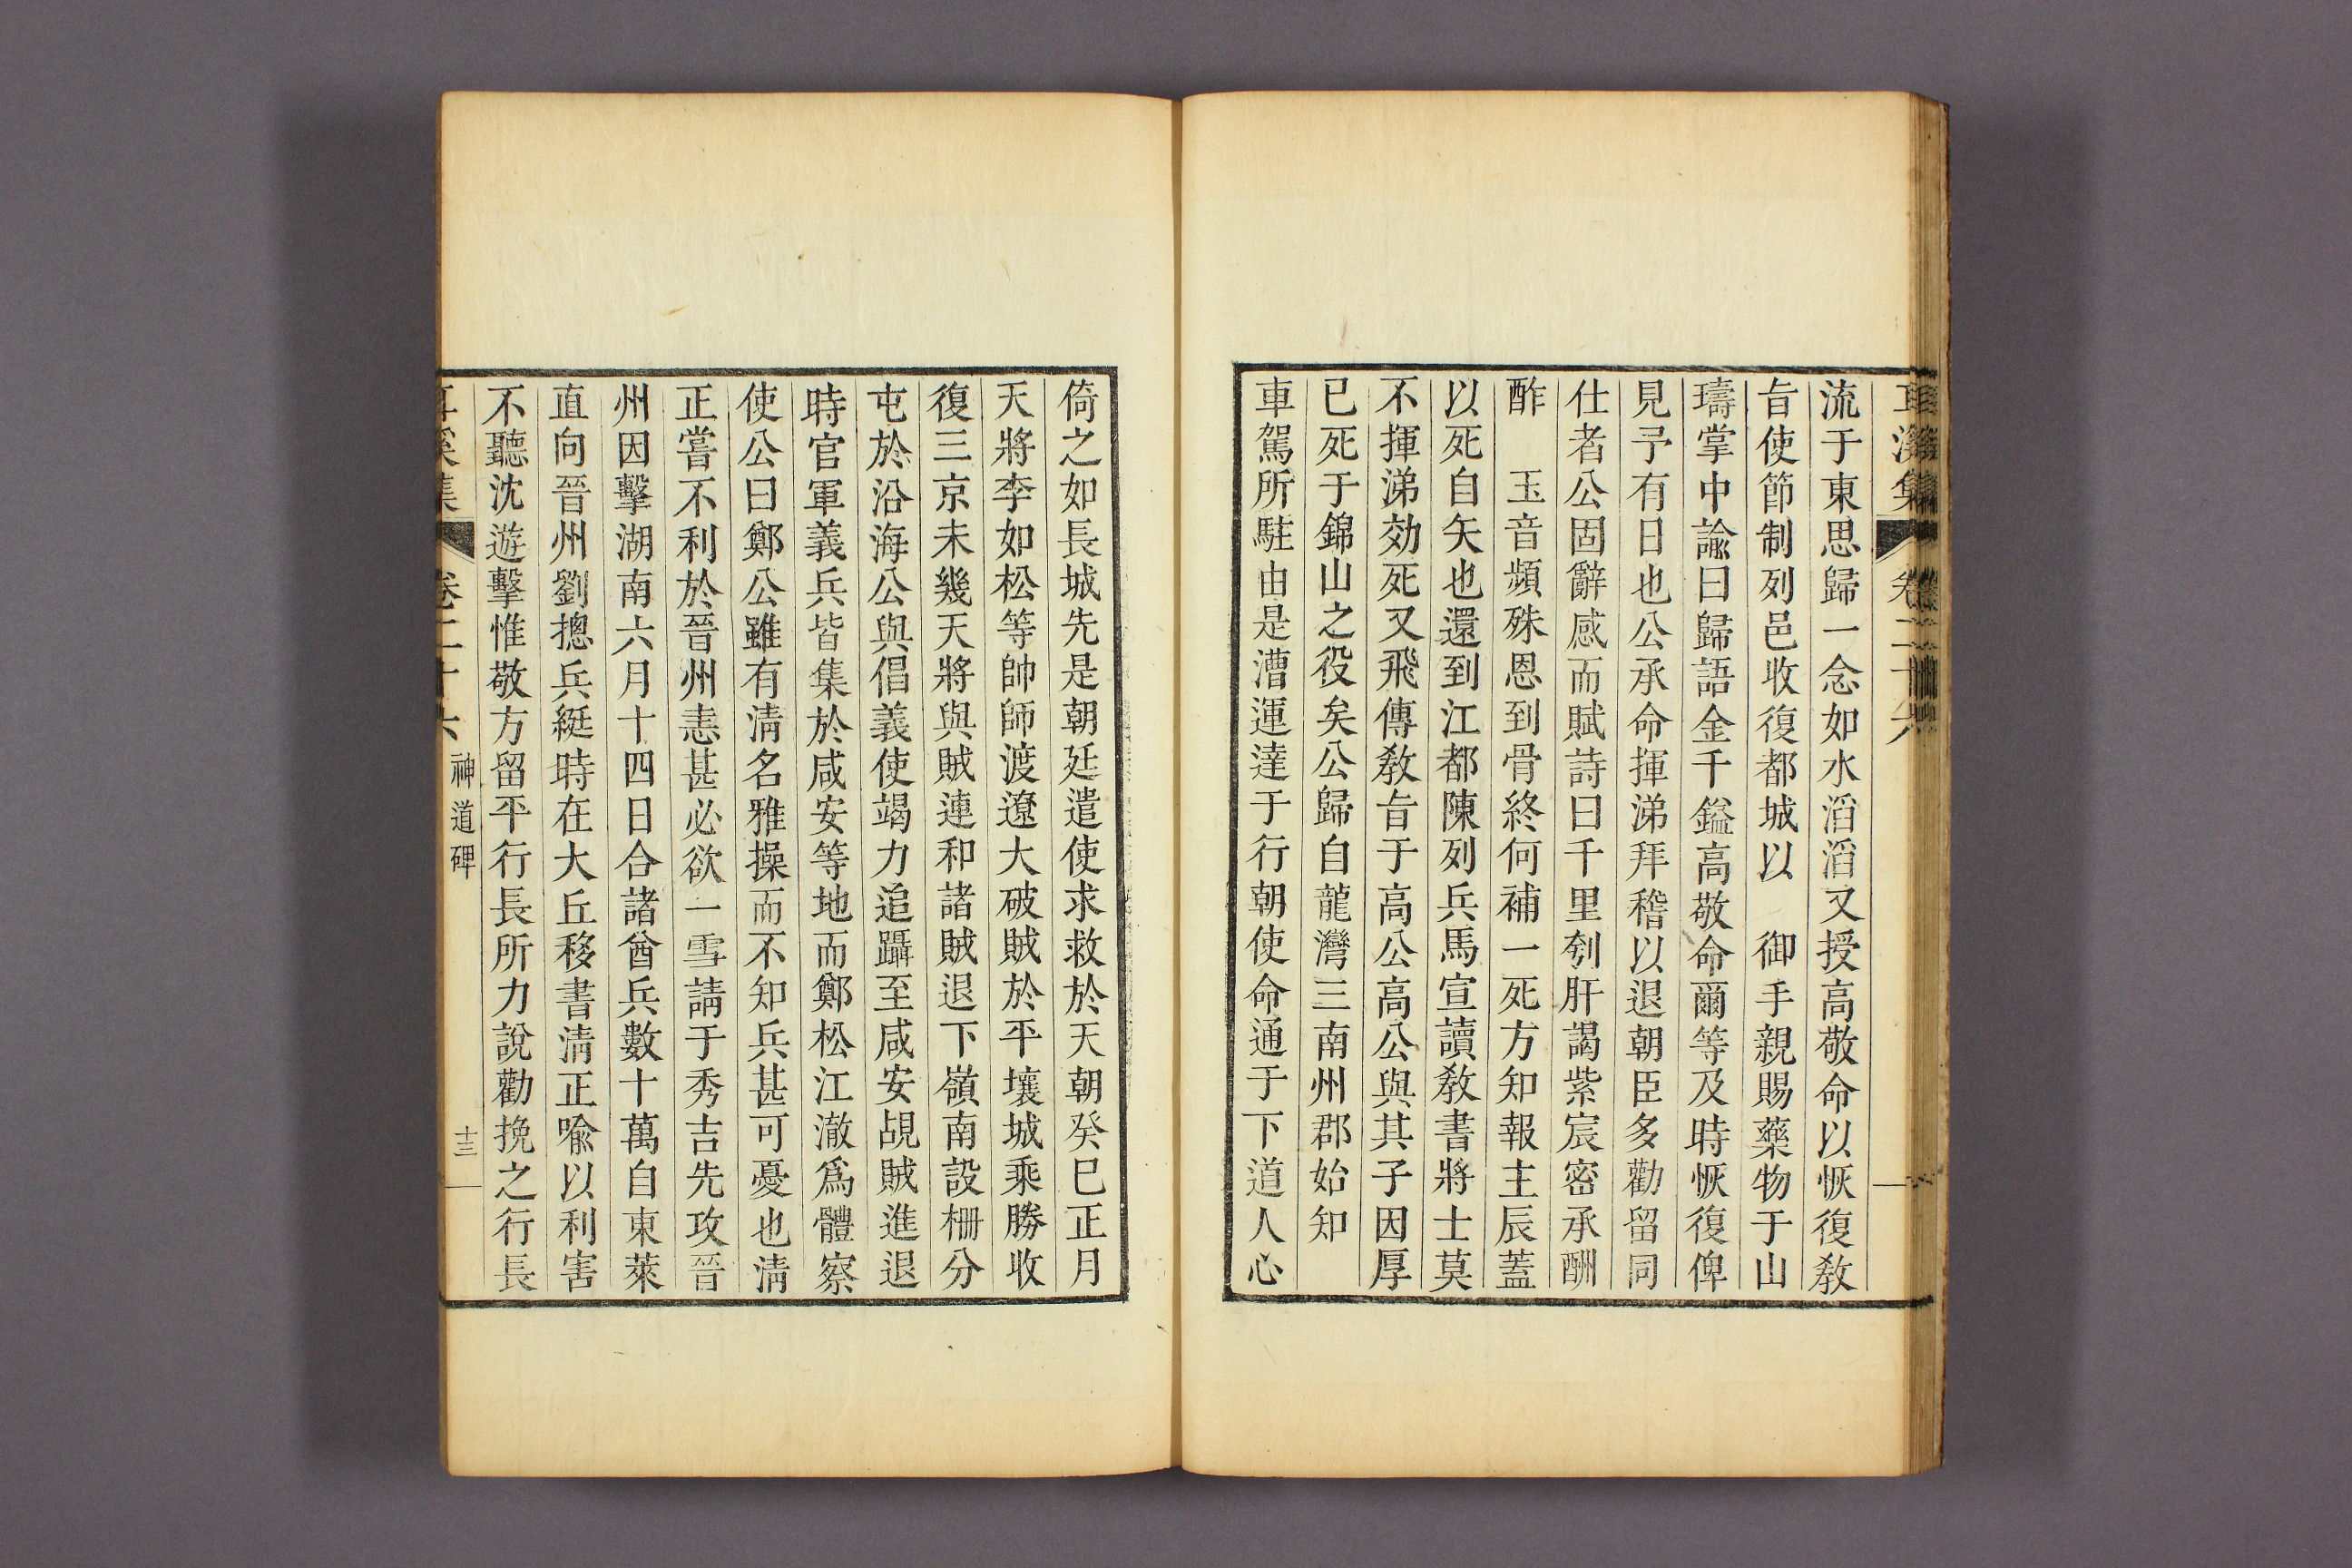 耳溪集 卷二十六
流于東思歸一念如水滔滔又授高敬命以恢復敎
旨使節制列邑收復都城以 御手親賜藥物于山
璹掌中諭曰歸語金千鎰高敬命爾等及時恢復俾
見予有日也公承命揮涕拜稽以退朝臣多勸留同
仕者公固辭感而賦詩曰千里刳肝謁紫宸密承酬
酢 玉音頻殊恩到骨終何補一死方知報主辰蓋
以死自矢也還到江都陳列兵馬宣讀敎書將士莫
不揮涕効死又飛傳敎旨于高公高公與其子因厚
已死于錦山之役矣公歸自龍灣三南州郡始知
車駕所駐由是漕運達于行朝使命通于下道人心
倚之如長城先是朝廷遣使求救於天朝癸巳正月
天將李如松等帥師渡遼大破賊於平壤城乘勝收
復三京未幾天將與賊連和諸賊退下嶺南設柵分
屯於沿海公與倡義使竭力追躡至咸安覘賊進退
時官軍義兵皆集於咸安等地而鄭松江澈爲體察
使公曰鄭公雖有淸名雅操而不知兵甚可憂也淸
正嘗不利於晉州恚甚必欲一雪請于秀吉先攻晉
州因擊湖南六月十四日合諸酋兵數十萬自東萊
直向晉州劉摠兵綎時在大丘移書淸正喩以利害
不聽沈遊擊惟敬方留平行長所力說勸挽之行長
耳溪集 卷二十六 神道碑 十三